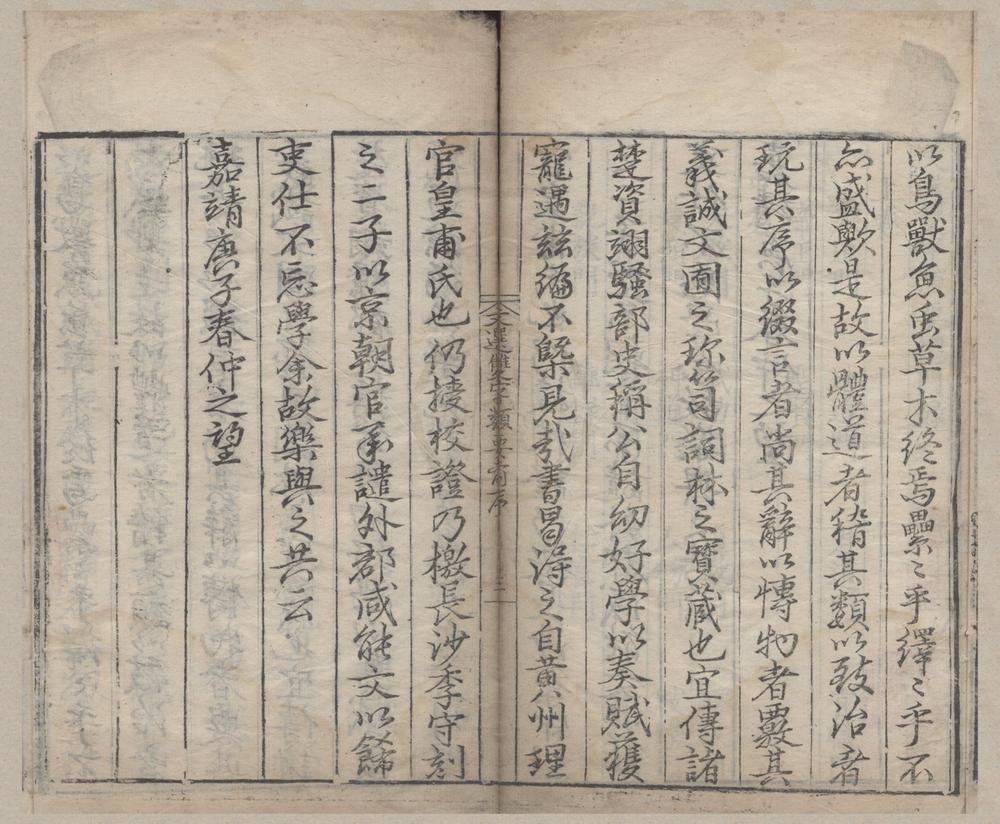 以鳥獸魚虫草木終焉纍〻乎繹〻乎不
亦盛歟是故以體道者稽其類以致治者
玩其序以綴言者尚其辭以博物者覈其
義誠文囿之珎笥詞林之寶藏也宜傳諸
楚資翊騷部史稱公自幼好學以奏賦獲
寵遇茲編不槩見哉書曷得之自黃州理
文選雙字類要有序
二
官皇甫氏也仍接校證乃檄長沙季守刻
之二子以京朝官承譴外郡咸能文以餙
吏仕不忘學余故樂與之共云
嘉靖庚子春仲之望